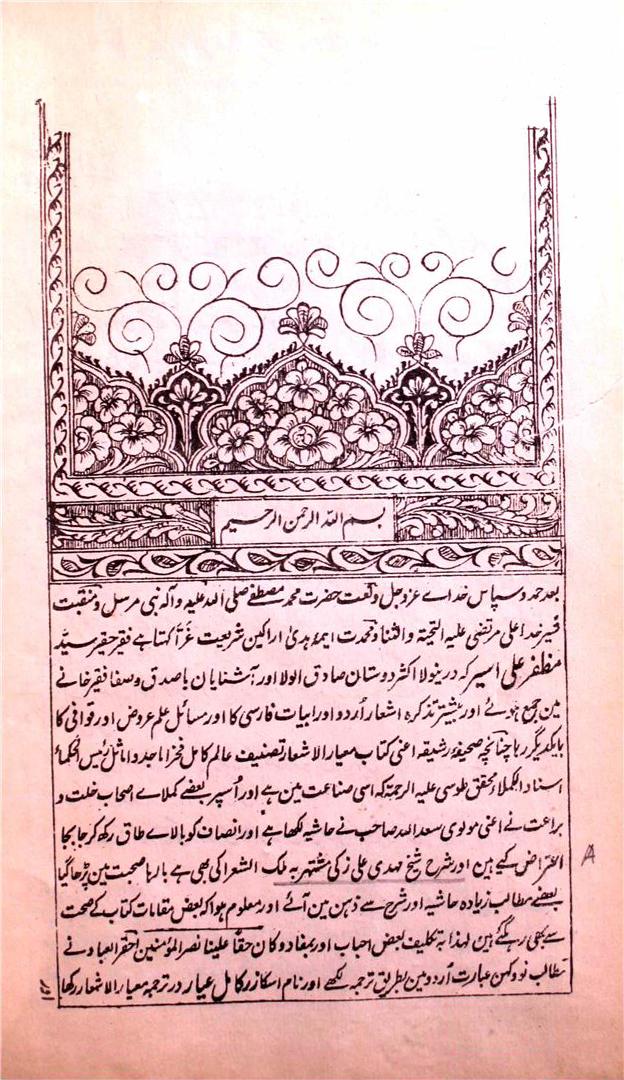 بسم اللہ الرحمن الرحیم
بعد حمد و سپاس خداے عزوجل و نعت حضرت محمد مصطفےٰ صلی اللہ علیہ و آلہ نبی مرسل و منقبت
شیر خدا علی مرتضی علیہ التحیۃ والثنا و محمدت ایمۂ ہدیٰ اراکین شریعت غرّا کہتا ہے فقیر حقیر سیّد
مظفر علی اسیر کہ درینولا اکثر دوستان صادق الولا اور آشنایان باصدق و صفا فقیر خانے
مین جمع ہوئے اور بیشتر تذکرہ اشعار اُردو اور ابیات فارسی کا اور مسائل علم عروض اور قوافی کا
بایکدیگر رہا چنانچہ صحیفۂ رشیقہ اعنی کتاب معیار الاشعار تصنیف عالم کامل فخر اماجد و اماثل رئیس الحکما
استاد الکملاء محقق طوسی علیہ الرحمۃ کہ اسی صناعت مین ہے اور اُسپر بعضے کملاے اصحاب خلت و
براعت نے اعنی مولوی سعد اللہ صاحب نے حاشیہ لکھا ہے اور انصاف کو بالاے طاق رکھ کر جابجا
اعتراض کیے ہین اور شرح شیخ مہدی علی زکی مشتہر بہ ملک الشعرا کی بھی ہے بارہا صحبت مین پڑھا گیا
بعضے مطالب زیادہ حاشیہ اور شرح سے ذہن مین آئے اور معلوم ہوا کہ بعض مقامات کتاب کے صحت
سے بھی رہ گئے ہین لہذا بہ تکلیف بعض احباب اور بمفاد و کان حقا علینا نصر المؤمنین احقر العباد نے
مطالب نو و کہن عبارت اُردو مین بطریق ترجمہ لکھے اور نام اسکا زر کامل عیار در ترجمہ معیار الاشعار رکھا
A